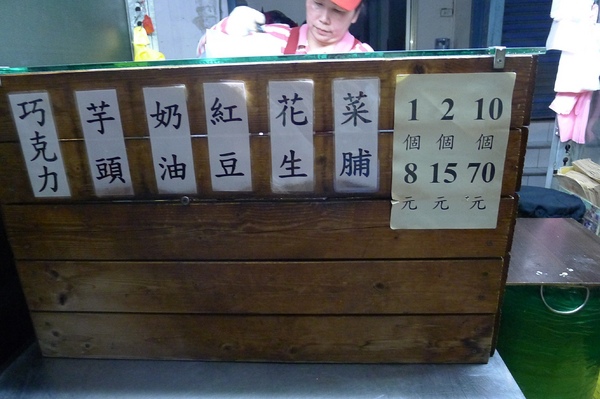 巧克力
芋頭
奶油
紅豆
花生
菜脯
1 2 10
個 個 個
8 15 70
元 元 元